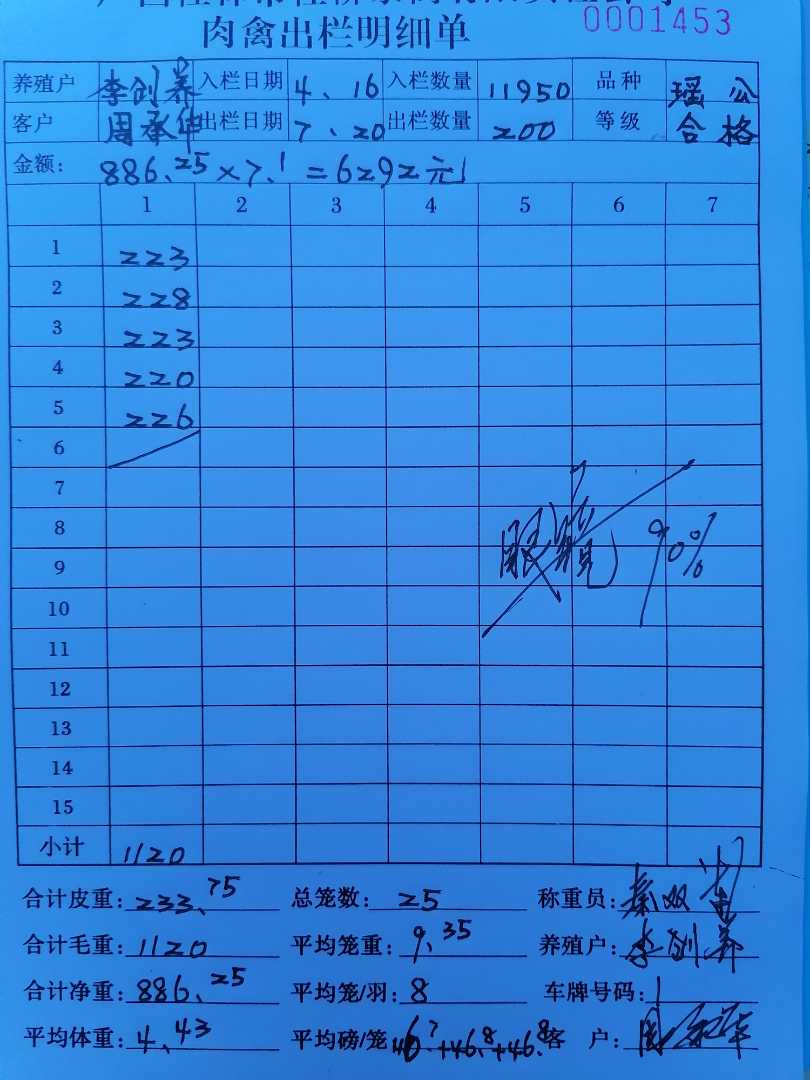 肉禽出栏明细单
0001453
养殖户 李创养 入栏日期 4、16 入栏数量 11950 品种 瑶公
客户 周承华 出栏日期 7、20 出栏数量 200 等级 合格
金额: 886.25×7.1=6292元
1 2 3 4 5 6 7
1 223
2 228
3 223
4 220
5 226
6
7
8
9 90%
10
11
12
13
14
15
小计 1120
合计皮重: 233.75 总笼数: 25 称重员: 秦双
合计毛重: 1120 平均笼重: 9.35 养殖户: 李创养
合计净重: 886.25 平均笼/羽: 8 车牌号码:
平均体重: 4.43 平均磅/笼 46.7+46.8+46.8 客户: 周承华